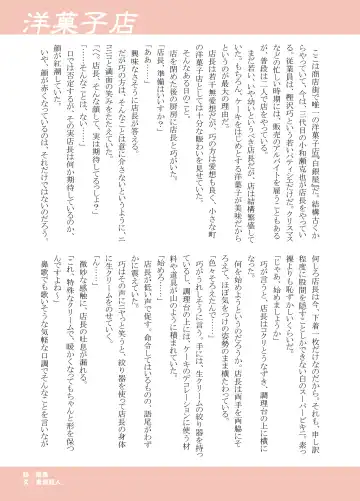 洋菓子店
ここは商店街で唯一の洋菓子店『白銀屋』だ。結構古くか
らやっていて、今は、三代目の小和瀬克也が店長をやってい
る。従業員は、梶沢巧という若いパティシエだけだ。クリスマ
スなどの忙しい時期には、販売のアルバイトを雇うこともある
が、普段は二人で店をやっている。
まだ若い、いや幼いという巧と店長だが、店は結構繁盛して
いた。もちろん、ケーキをはじめとする洋菓子が美味だから
というのが最大の理由だ。
店長は若干無愛想だが、巧の方は愛想も良く、小さな町
の洋菓子店としては十分な賑わいを見せていた。
そんなある日のこと。
店を閉めた後の厨房に店長と巧がいた。
「店長、準備はいいですか」
「ああ……」
興味なさそうに店長が答える。
だが巧の方は、そんなことは意に介さないというように、ニ
コニコと満面の笑みをたたえていた。
「へへ、店長、そんな顔して、実は期待してるでしょう」
「……そんなことは、ない……」
口では否定するが、その実店長は何か期待しているのか、
顔が紅潮していた。
いや、顔が赤くなっているのは、それだけではないのだろう。
何しろ店長は今、下着一枚だけなのだから。それも、申し訳
程度に股間を隠すことしかできない白のスーパービキニ。素っ
裸よりも恥ずかしいくらいだ。
「じゃあ、始めましょうか」
巧が言うと、店長はコクリとうなずき、調理台の上に横に
なった。
何を始めようというのだろうか。店長は両手を両脇にそ
ろえて、ほぼ気をつけの姿勢のまま横たわっている。
「色々そろえたんで……」
巧がうれしそうに言う。手には、生クリームの絞り器を持っ
ているし、調理台の上には、ケーキのデコレーションに使う材
料や道具が山のように積まれていた。
「始めろ……」
店長が低い声で促す。命令してはいるものの、語尾がわず
かに震えていた。
巧はその声にニヤっと笑うと、絞り器を使って店長の身体
に生クリームをのせていく。
「……」
微妙な感触に、店長の吐息が漏れる。
「これ、特殊なクリームで、暖かくなってもちゃんと形を保つ
んですよね〜」
鼻歌でも歌いそうな気軽な口調でそんなことを言いなが